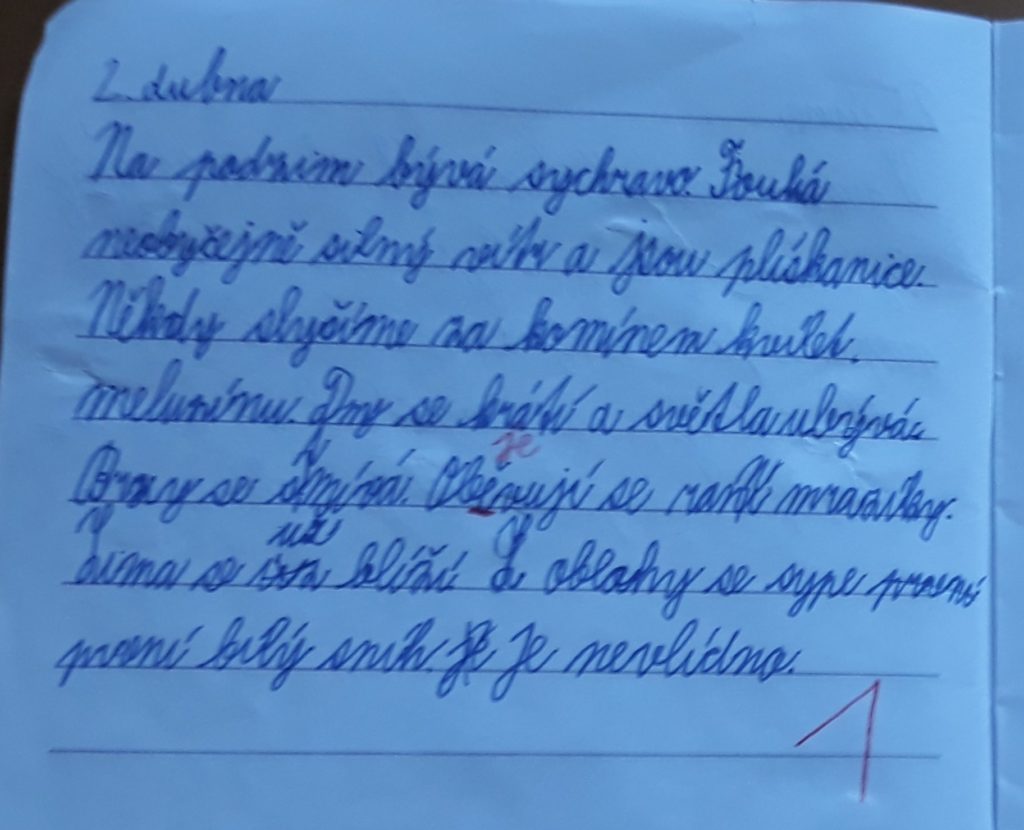 2. dubna
Na podzim bývá sychravo. Fouká
neobyčejně silný vítr a jsou plískanice.
Někdy slyšíme za komínem kvílet
meluzínu. Dny se krátí a světla ubývá.
Brzy se stmívá. Objevují se ranní mrazíky.
Zima se už blíží. Z oblohy se sype
první bílý sníh. Je nevlídno.
1